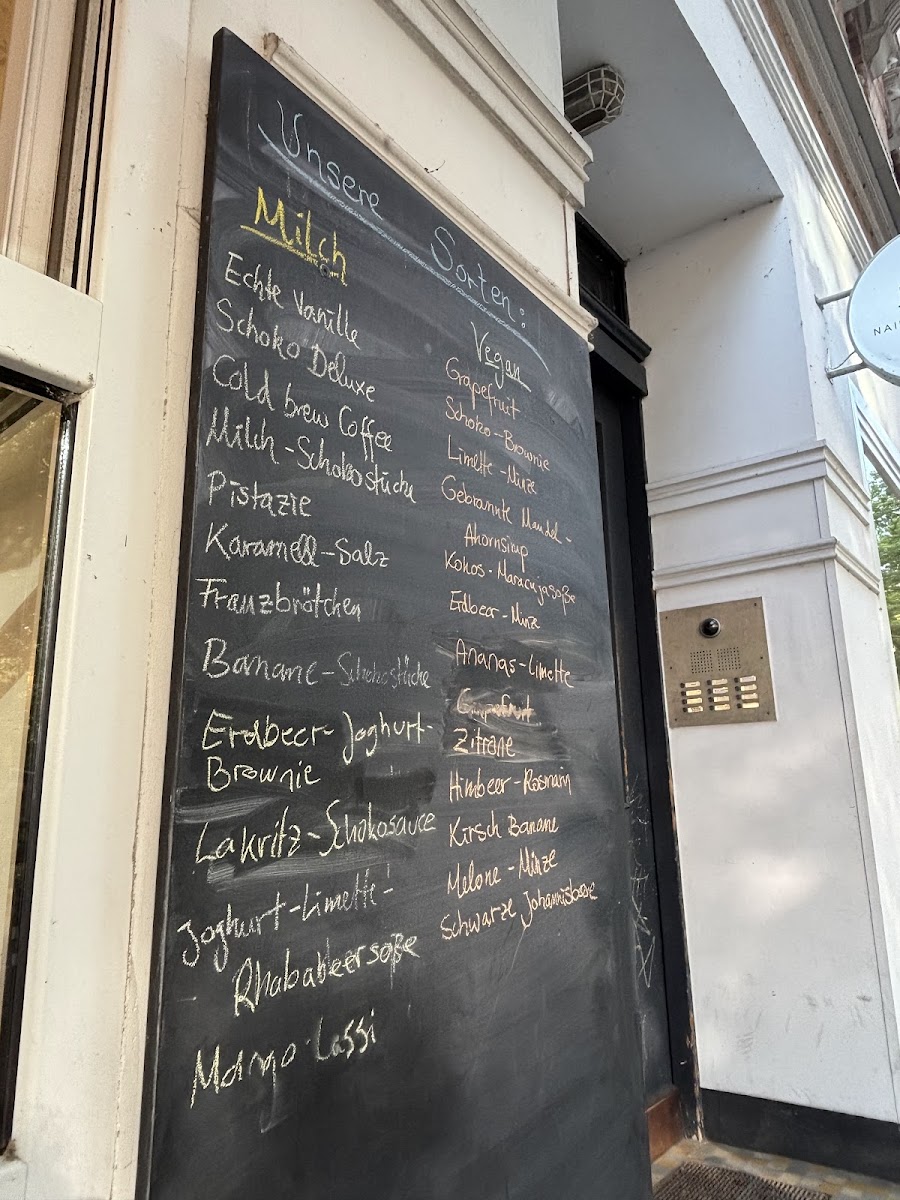 Unsere Sorten:
Milch
Echte Vanille
Schoko Deluxe
Cold brew Coffee
Milch-Schokostücke
Pistazie
Karamell-Salz
Franzbrötchen
Banane-Schokostücke
Erdbeer-Joghurt-
Brownie
Lakritz-Schokosauce
Joghurt-Limette-
Rhababeersoße
Mango-Lassi
Vegan
Grapefruit
Schoko-Brownie
Limette-Minze
Gebrannte Mandel-
Ahornsirup
Kokos-Maracujasoße
Erdbeer-Minze
Ananas-Limette
Grapefruit
Zitrone
Himbeer-Rosmarin
Kirsch Banane
Melone-Minze
Schwarze Johannisbeere
NAI